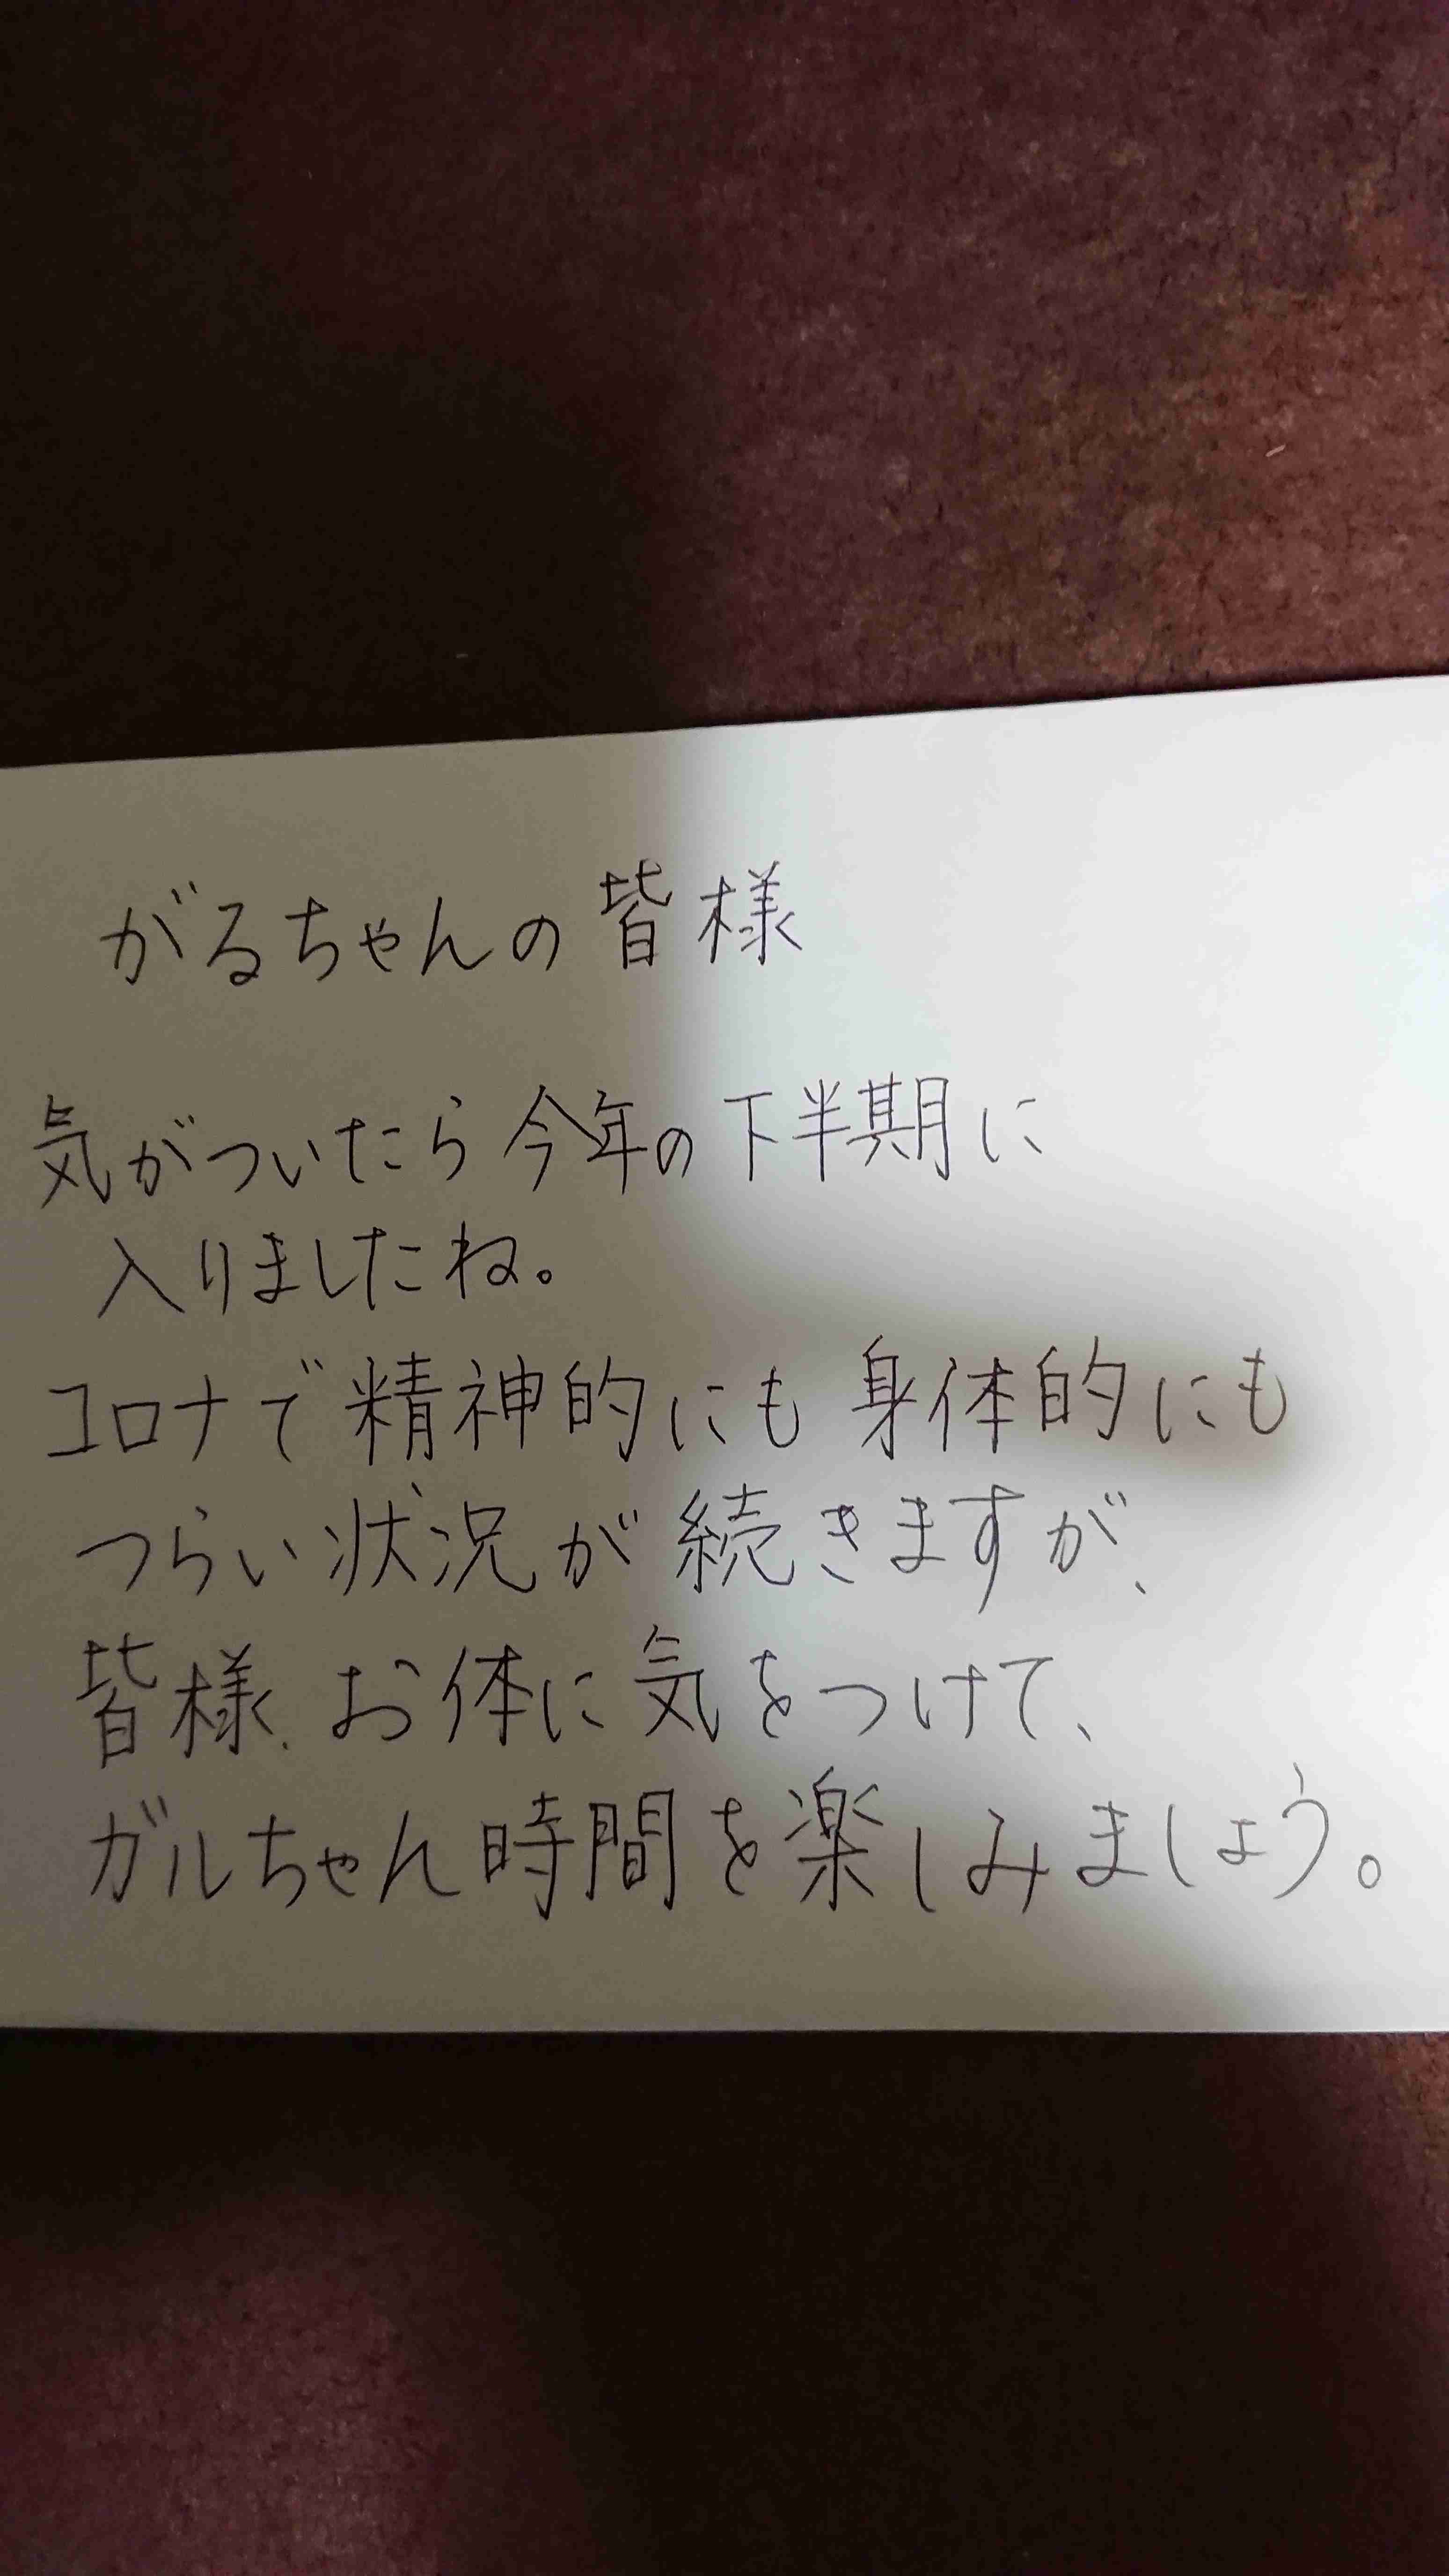 がるちゃんの皆様
気がついたら今年の下半期に
入りましたね。
コロナで精神的にも身体的にも
つらい状況が続きますが、
皆様、お体に気をつけて、
ガルちゃん時間を楽しみましょう。